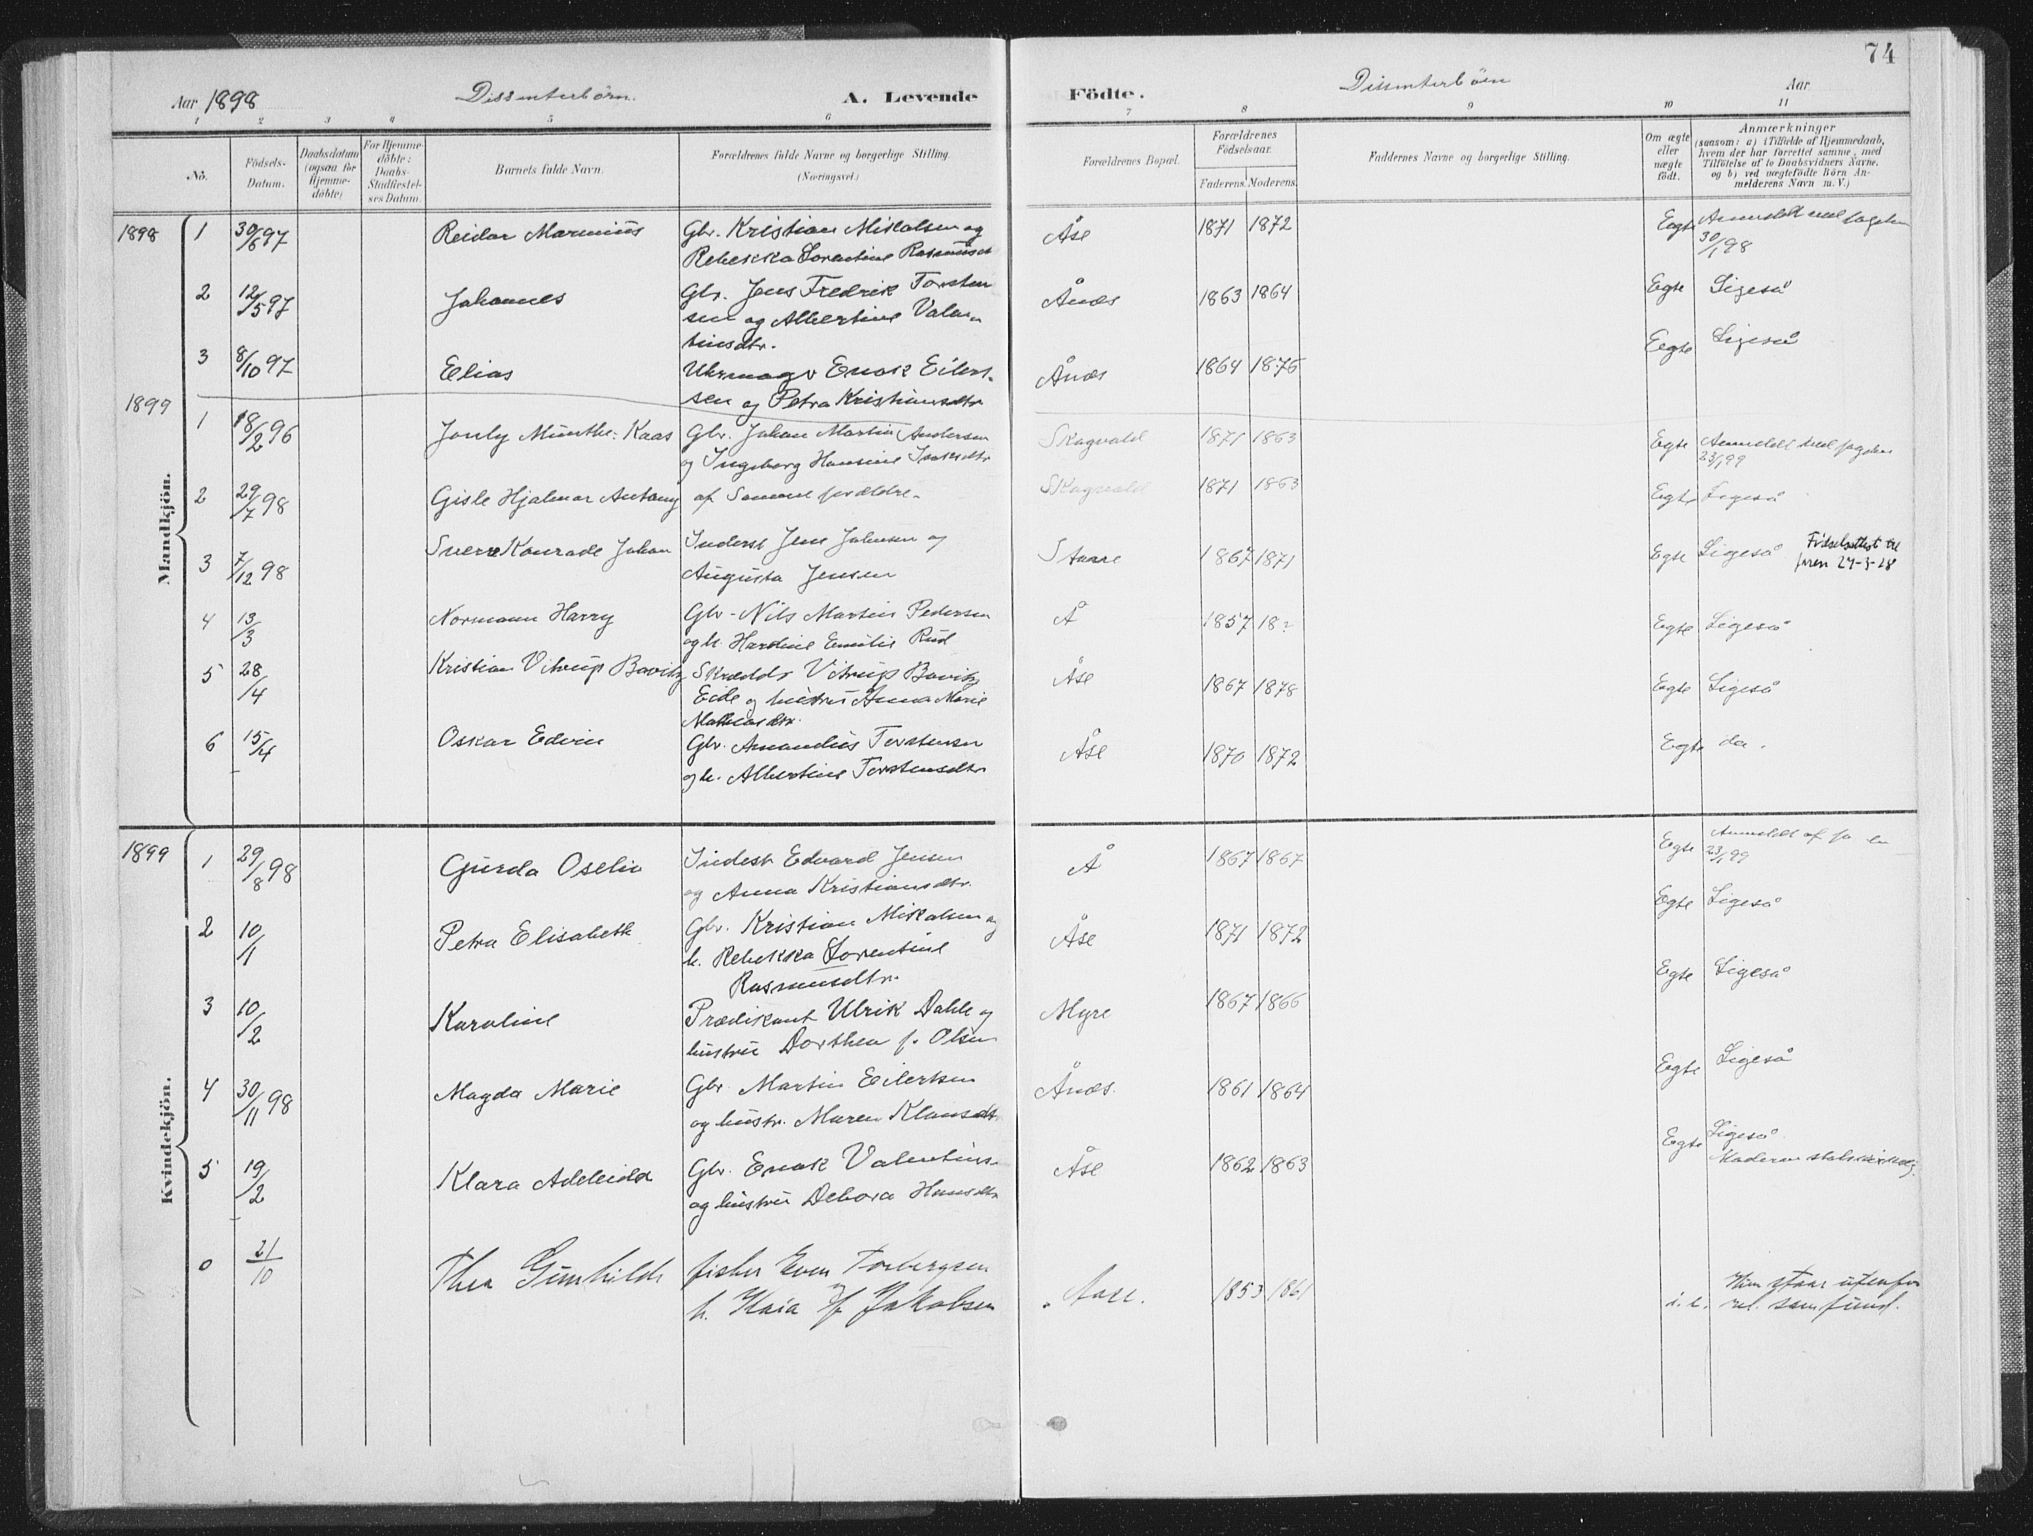 74
Aar 1898 Dissenterbörn. A. Levende Födte. Dissenterbörn Aar
1 2 3 4 5 6 7 8 9 10 11
No. Födsels-Datum. Daabsdatum (ogsaa for Hjemme-döbte) For Hjemme-döbte: Daabs-Stadfæstel-ses Datum. Barnets fulde Navn. Forældrenes fulde Navne og borgerlige Stilling. (Næringsvei.) Forældrenes Bopæl. Forældrenes Födselsaar. Faderens. Moderens. Faddernes Navne og borgerlige Stilling. Om ægte eller uægte födt. Anmærkninger (saasom: a) i Tilfælde af Hjemmedaab, hvem der har forrettet samme, med Tilföielse af to Daabsvidners Navne, og b) ved uægtefödte Börn An-melderens Navn m. V.)
Mandkjön.
1898 1 30/6 97 Reidar Marinius Gbr. Kristian Mikalsen og Åse 1871 1872 Egte Anmeldt ved fogden
Rebekka Lorentine Rasmusdt 30/1 98
2 12/5 97 Johannes Gbr. Jens Fredrik Torsten Ånæs 1863 1864 Egte Ligeså
sen og Albertine Valen
tinsdtr.
3 8/10 97 Elias Uhrmager Enok Eilert- Ånæs 1864 1876 Egte Ligeså
sen og Petra Kristiansdtr
1899 1 18/2 96 Jonly Munthe-Kaas Gbr. Johan Martin Andersen Skogvold 1871 1863 Egte Anmeldt ved fogden
og Ingeborg Hansine Isaksdtr 23/1 99
2 29/7 98 Gisle Hjalmar Antony af Samme forældre. Skogvold 1871 1863 Egte Ligeså
3 7/12 98 Sverre Konrade Johan Inderst Jens Johnsen og Staare 1867 1871 Egte Ligeså Fødselsattest til
Augusta Jensen 24-3-28
4 13/3 Normann Harry Gbr. Nils Martin Pedersen Å 1857 18? Egte Ligeså
og h. Hardine Emilie Rud
5 28/4 Kristian Vitrup Bovitz Skrædder Vitrup Bovitz Åse 1867 1878 Egte Ligeså
Eide og hustru Anna Marie
Mathiasdtr.
6 15/4 Oskar Edvin Gbr. Amandus Torstensen Åse 1870 1872 Egte do.
og h. Albertine Torstensdtr
Kvindekjön.
1899 1 29/8 98 Gurda Oselia Inderst Edvard Jensen Å 1867 1867 Egte Anmeldt af
og Anna Kristiansdtr. 23/1 99
2 10/1 Petra Elisabeth Gbr. Kristian Mikalsen og Åse 1871 1872 Egte Ligeså
h. Rebekka Lorentine
Rasmusdtr.
3 10/2 Karoline Prædikant Ulrik Dahle og Myre 1867 1866 Egte Ligeså
hustru Dorthea f. Olsen
4 30/11 98 Magda Marie Gbr. Martin Eilertsen Ånæs. 1861 1864 Egte Ligeså
og hustr. Maren Klausdtr.
5 19/2 Klara Adeleida Gbr. Enok Valentins. Åse 1862 1863 Egte Ligeså.
og hustru Debora Hansdtr Moderen statskirkelig.
0 21/10 Thea Gunhilde fisker Even Torbergsen Aase. 1853 1861 Hun staar utenfor
h. Kaia f. Jakobsen rel. samfund.